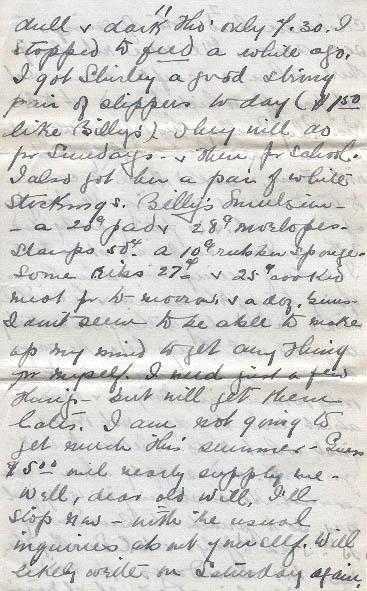 dull & dark tho' only 7.30. I
stopped to feed a while ago.
I got Shirley a good strong
pair of slippers to day ($1.50
like Billy's) They will do
for Sundays - & then for school.
I also got her a pair of white
Stockings. Billy's
- a 20¢ pad & 28¢ envelopes -
Stamps 50¢ a 10¢ rubber sponge -
Some 27¢ & 25¢ cooked
meat for to morrow & a doz. buns -
I don't seem to be able to make
up my mind to get any thing
for myself. I need just a few
things - but will get them
later. I am not going to
get much this summer - Guess
$5.00 will nearly supply me -
Well, dear old Will, I'll
stop now - with the usual
inquiries about yourself. Will
likely write on Saturday again.